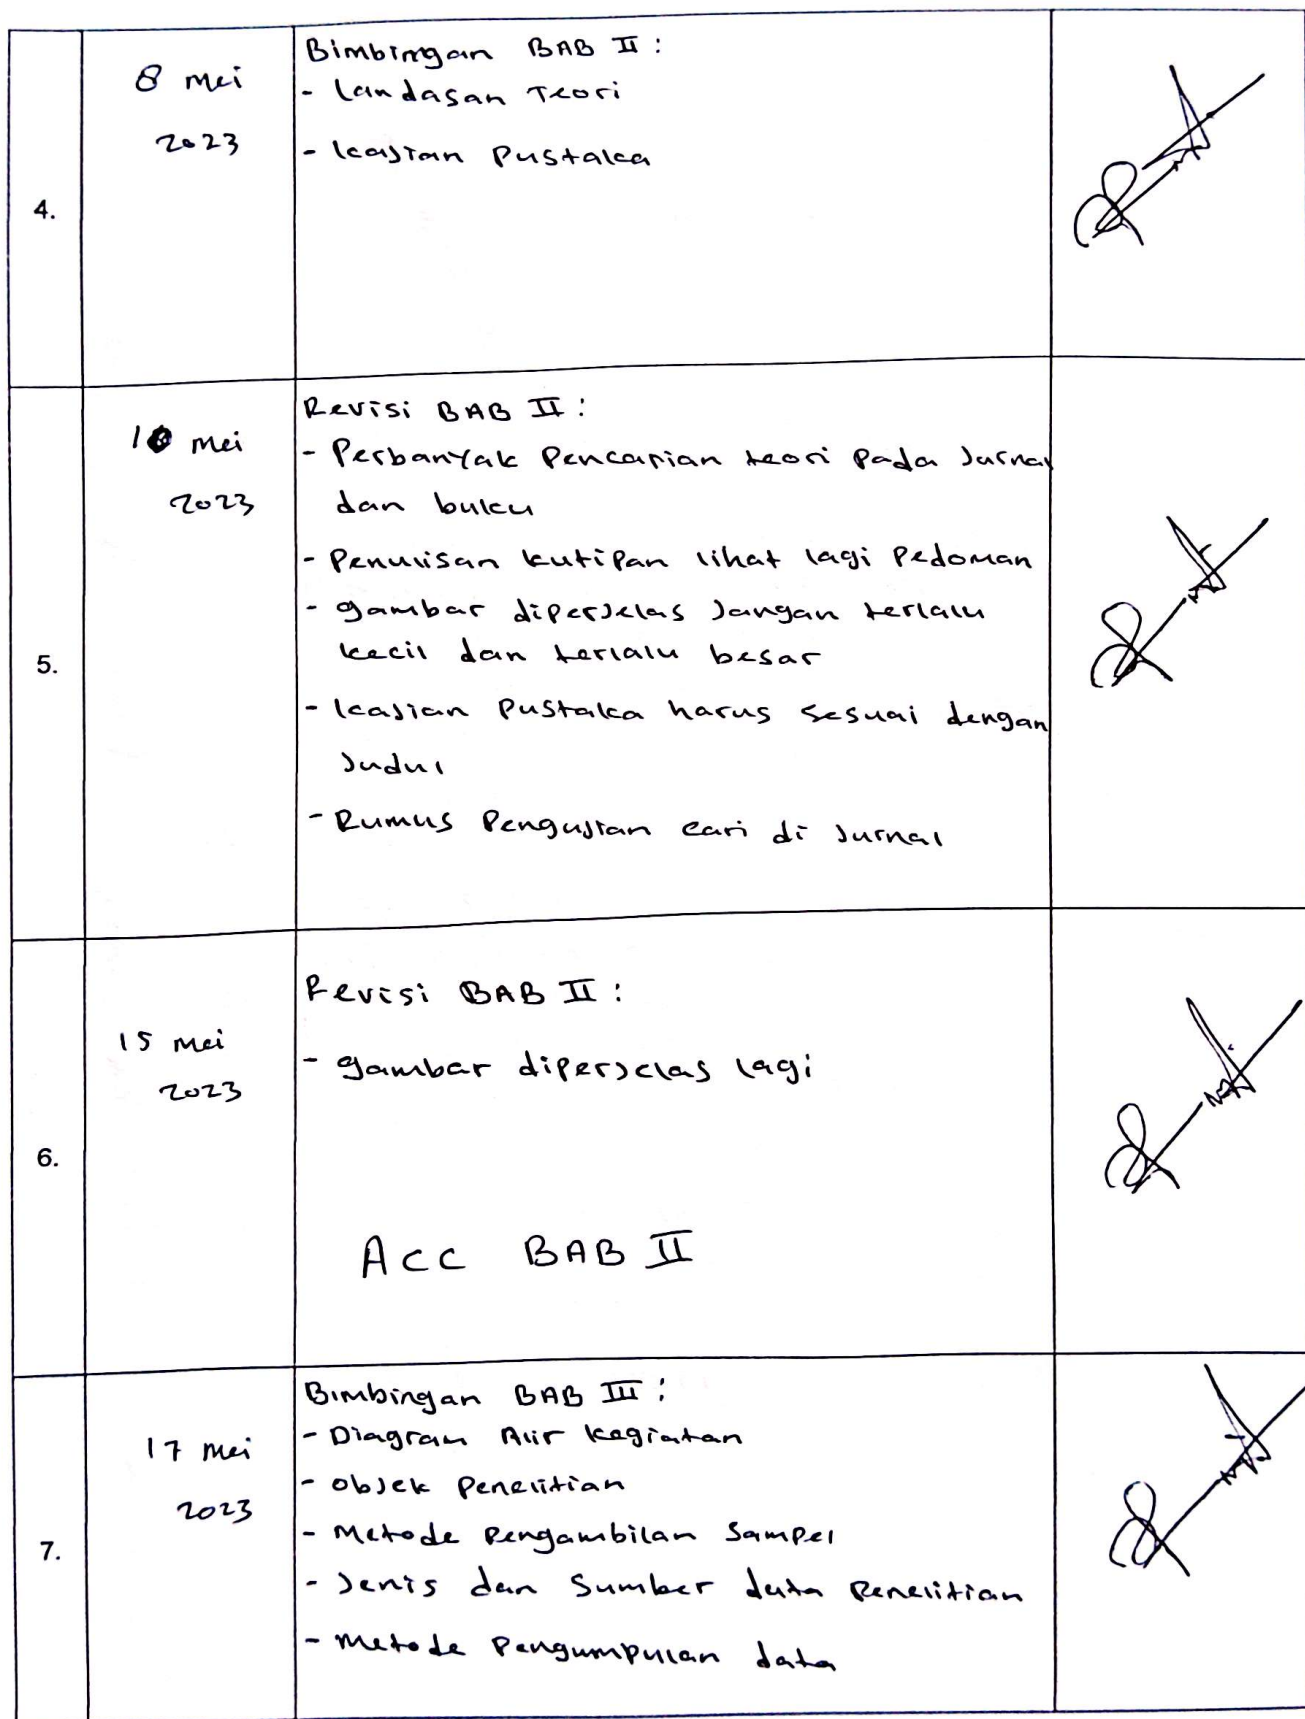 4.
8 Mei
2023
Bimbingan BAB II :
- Landasan Teori
- kajian Pustaka
5.
10 Mei
2023
Revisi BAB II :
- Perbanyak Pencarian teori Pada Jurnal
dan buku
- Penulisan kutipan lihat lagi Pedoman
- gambar diperjelas Jangan terlalu
kecil dan terlalu besar
- kajian Pustaka harus sesuai dengan
Judul
- Rumus Pengujian cari di Jurnal
6.
15 Mei
2023
Revisi BAB II :
- gambar diperjelas lagi
ACC BAB II
7.
17 Mei
2023
Bimbingan BAB III :
- Diagram Alir kegiatan
- Objek Penelitian
- Metode Pengambilan Sampel
- Jenis dan Sumber data Penelitian
- Metode Pengumpulan data